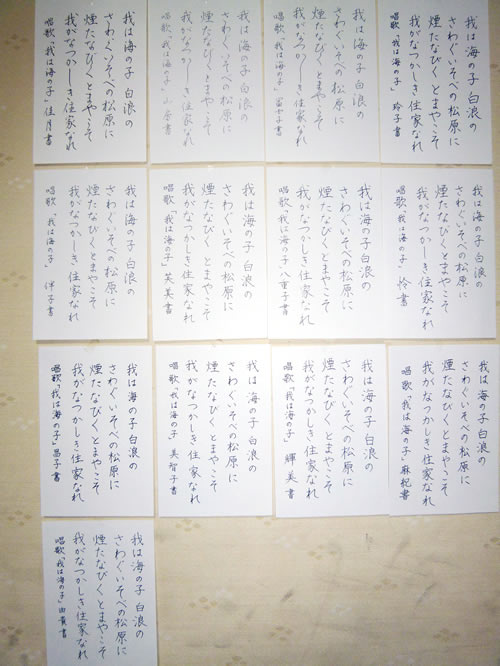 我は海の子 白浪の
さわぐいそべの松原に
煙たなびくとまやこそ
我がなつかしき住家なれ
唱歌「我は海の子」佳月書
我は海の子 白浪の
さわぐいそべの松原に
煙たなびくとまやこそ
我がなつかしき住家なれ
唱歌「我は海の子」
我は海の子 白浪の
さわぐいそべの松原に
煙たなびくとまやこそ
我がなつかしき住家なれ
唱歌「我は海の子」
我は海の子 白浪の
さわぐいそべの松原に
煙たなびくとまやこそ
我がなつかしき住家なれ
唱歌「我は海の子」玲子書
我は海の子 白浪の
さわぐいそべの松原に
煙たなびくとまやこそ
我がなつかしき住家なれ
唱歌「我は海の子」
我は海の子 白浪の
さわぐいそべの松原に
煙たなびくとまやこそ
我がなつかしき住家なれ
唱歌「我は海の子」芙美書
我は海の子 白浪の
さわぐいそべの松原に
煙たなびくとまやこそ
我がなつかしき住家なれ
唱歌「我は海の子」八重子書
我は海の子 白浪の
さわぐいそべの松原に
煙たなびくとまやこそ
我がなつかしき住家なれ
唱歌「我は海の子」怜書
我は海の子 白浪の
さわぐいそべの松原に
煙たなびくとまやこそ
我がなつかしき住家なれ
唱歌「我は海の子」昌子書
我は海の子 白浪の
さわぐいそべの松原に
煙たなびくとまやこそ
我がなつかしき住家なれ
唱歌「我は海の子」美智子書
我は海の子 白浪の
さわぐいそべの松原に
煙たなびくとまやこそ
我がなつかしき住家なれ
唱歌「我は海の子」輝美書
我は海の子 白浪の
さわぐいそべの松原に
煙たなびくとまやこそ
我がなつかしき住家なれ
唱歌「我は海の子」麻紀書
我は海の子 白浪の
さわぐいそべの松原に
煙たなびくとまやこそ
我がなつかしき住家なれ
唱歌「我は海の子」由貴書